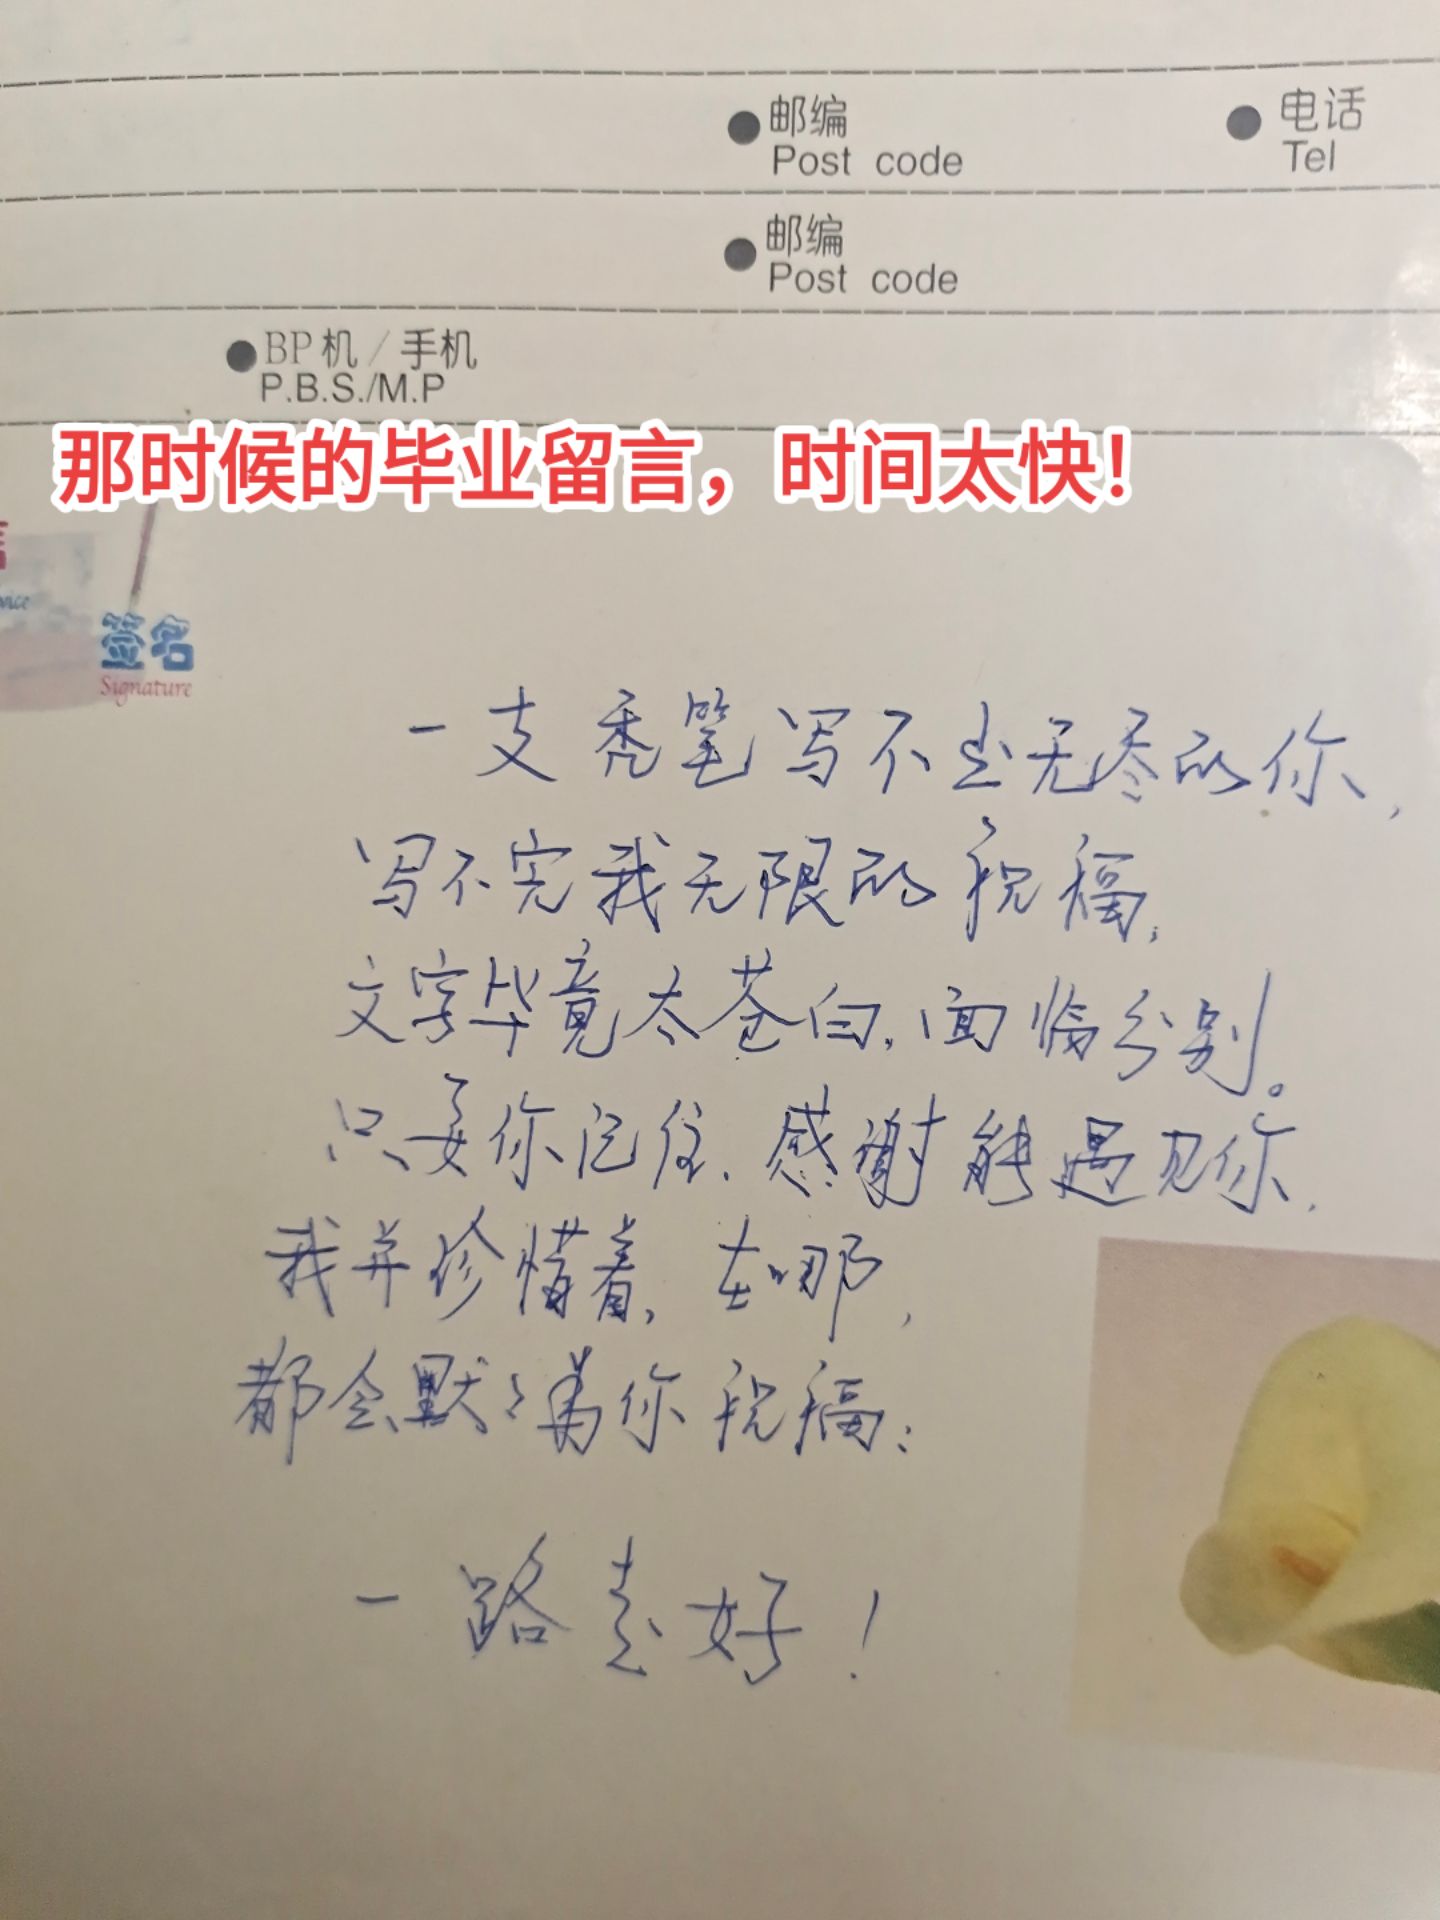 邮编
Post code
电话
Tel
邮编
Post code
BP机/手机
P.B.S./M.P
那时候的毕业留言，时间太快！
签名
Signature
一支秃笔写不出无尽的你，
写不完我无限的祝福，
文字毕竟太苍白，面临分别。
只要你记住，感谢能遇见你，
我并珍惜着，在哪，
都会默々为你祝福：
一路走好！